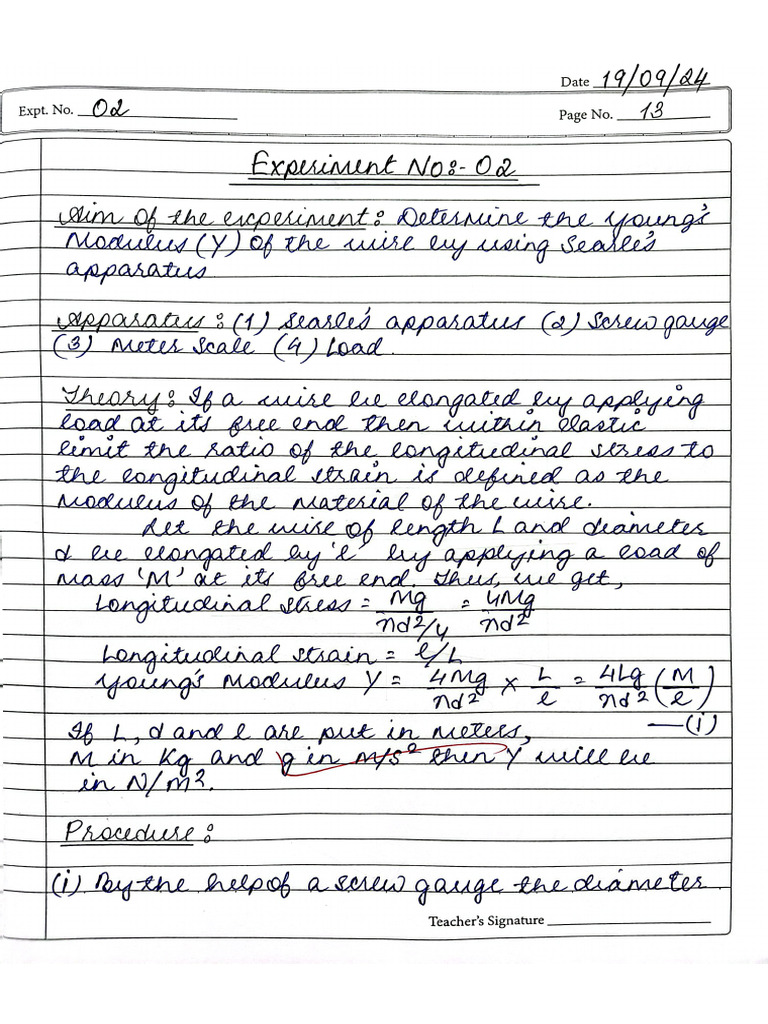 Date 19/09/24
Expt. No. 02
Page No. 13
Experiment No:- 02
Aim of the experiment: Determine the Young's
Modulus (Y) of the wire by using Searle's
apparatus
Apparatus: (1) Searle's apparatus (2) Screw gauge
(3) Meter Scale (4) Load.
Theory: If a wire be elongated by applying
load at its free end then within elastic
limit the ratio of the longitudinal stress to
the longitudinal strain is defined as the
Modulus of the material of the wire.
Let the wire of length L and diameter
d be elongated by 'l' by applying a load of
mass 'M' at its free end. Thus, we get,
Longitudinal stress = Mg/(πd²/4) = 4Mg/πd²
Longitudinal strain = l/L
Young's Modulus Y = 4Mg/πd² × L/l = 4Lg/πd² (M/l)
If L, d and l are put in meters, —(i)
M in Kg and g in m/s² then Y will be
in N/m².
Procedure:
(i) By the help of a screw gauge the diameter
Teacher's Signature